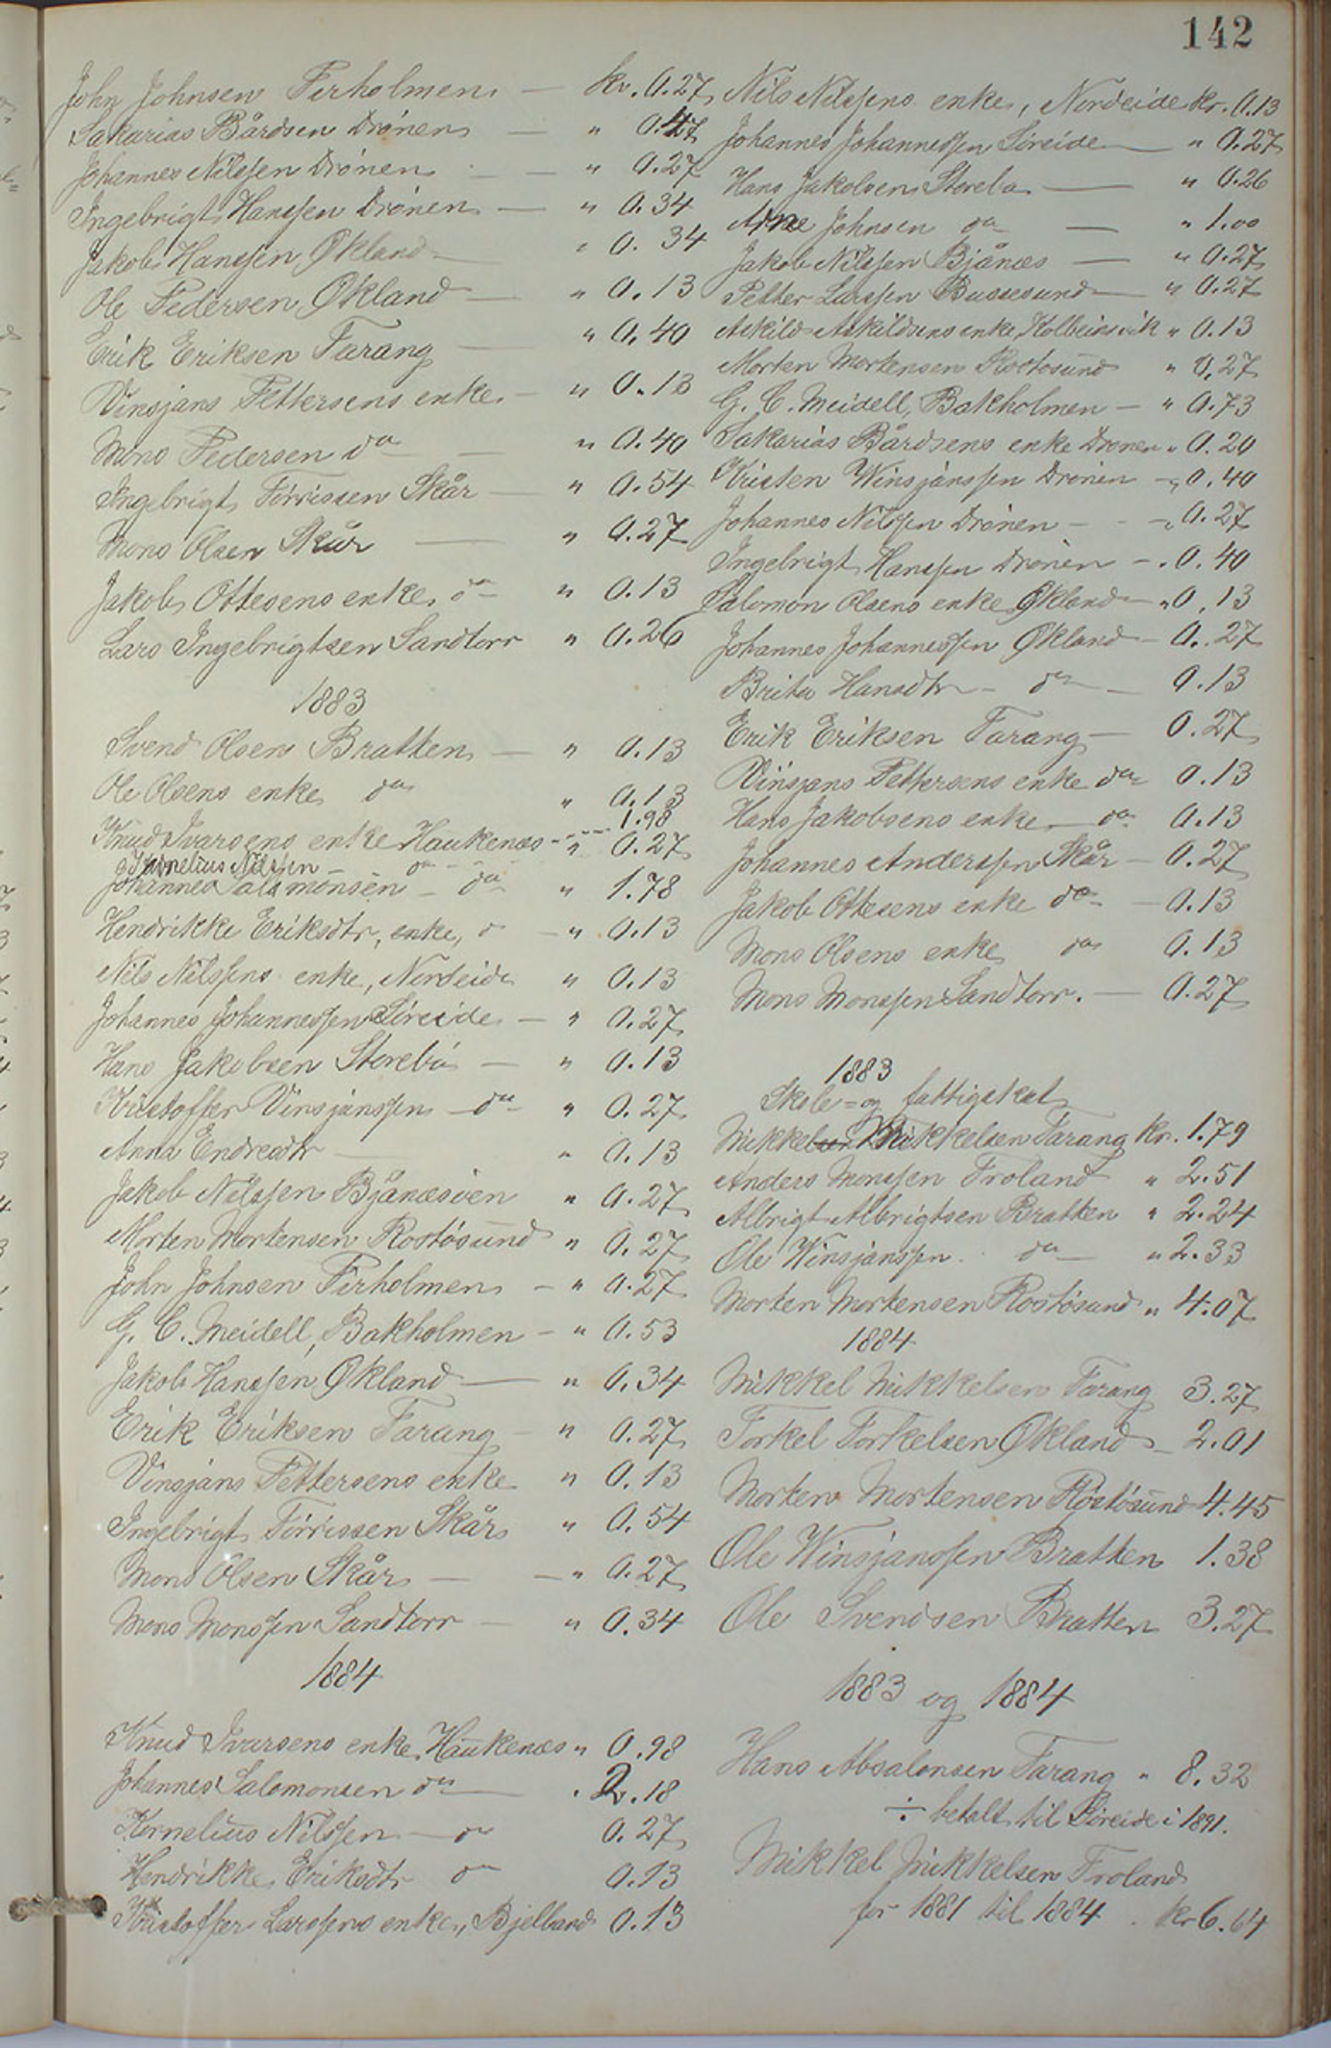 142
John Johnsen Firholmen — kr. 0.27
Sakarias Bårdsen Drönen — " 0.47
Johannes Nilssen Drönen — " 0.27
Ingebrigt Hanssen Drönen — " 0.34
Jakob Hanssen Økland — " 0.34
Ole Pedersen Økland — " 0.13
Erik Eriksen Tarang — " 0.40
Vinsjans Pettersens enke — " 0.13
Mons Pedersen do — " 0.40
Ingebrigt Törrissen Skår — " 0.54
Mons Olsen Skår — " 0.27
Jakob Ottesens enke, do — " 0.13
Lars Ingebrigtsen Sandtorr " 0.26
1883
Svend Olsen Bratten — " 0.13
Ole Olsens enke do " 0.13
1.98
Knud Ivarsens enke Haukenæs - " 0.27
Kornelius Nilssen — do
Johannes Salomonsen — do " 1.78
Hendrikke Eriksdtr, enke, do — " 0.13
Nils Nilssens enke, Nordeide " 0.13
Johannes Johannessen Söreide — " 0.27
Hans Jakobsen Storebö — " 0.13
Kristoffer Vinsjanssen — do " 0.27
Anna Endresdtr — " 0.13
Jakob Nilssen Bjånæsöen " 0.27
Morten Mortensen Rostösund " 0.27
John Johnsen Firholmen — " 0.27
G. C. Meidell, Bakholmen — " 0.53
Jakob Hanssen Økland — " 0.34
Erik Eriksen Tarang — " 0.27
Vinsjans Pettersens enke " 0.13
Ingebrigt Törrissen Skår " 0.54
Mons Olsen Skår — — " 0.27
Mons Monssen Sandtorr — " 0.34
1884
Knud Ivarsens enke, Haukenæs " 0.98
Johannes Salomonsen do — " 2.18
Kornelius Nilssen — do 0.27
Hendrikke Eriksdtr do 0.13
Kristoffer Larssens enke, Bjelland 0.13
Nils Nilssens enke, Nordeide kr. 0.13
Johannes Johannessen Söreide — " 0.27
Hans Jakobsen Storebö — " 0.26
Arne Johnsen do — " 1.00
Jakob Nilssen Bjånæs — " 0.27
Petter Larssen Bussesund — " 0.27
Askild Askildsens enke, Kolbeinsvik " 0.13
Morten Mortensen Rostösund " 0.27
G. C. Meidell, Bakholmen — " 0.73
Sakarias Bårdsens enke Drönen " 0.20
Kristen Winsjanssen Drönen — " 0.40
Johannes Nilssen Drönen - - - " 0.27
Ingebrigt Hanssen Drönen — " 0.40
Salomon Olsens enke Økland — " 0.13
Johannes Johannessen Økland — 0.27
Brita Hansdtr — do — 0.13
Erik Eriksen Tarang — 0.27
Vinsjans Pettersens enke do 0.13
Hans Jakobsens enke — do 0.13
Johannes Anderssen Skår — 0.27
Jakob Ottesens enke do — 0.13
Mons Olsens enke do 0.13
Mons Monssen Sandtorr. — 0.27
1883
Skole= og fattigskat
Mikkel Mikkelsen Tarang kr. 1.79
Anders Monssen Troland " 2.51
Albrigt Albrigtsen Bratten " 2.24
Ole Winsjanssen do — " 2.33
Morten Mortensen Rostösund " 4.07
1884
Mikkel Mikkelsen Tarang 3.27
Torkel Torkelsen Økland — 2.01
Morten Mortensen Rostösund 4.45
Ole Winsjanssen Bratten 1.38
Ole Svendsen Bratten 3.27
1883 og 1884
Hans Absalonsen Tarang " 8.32
÷ betalt til Söreide i 1891.
Mikkel Mikkelsen Troland
for 1881 til 1884 . kr 6.64